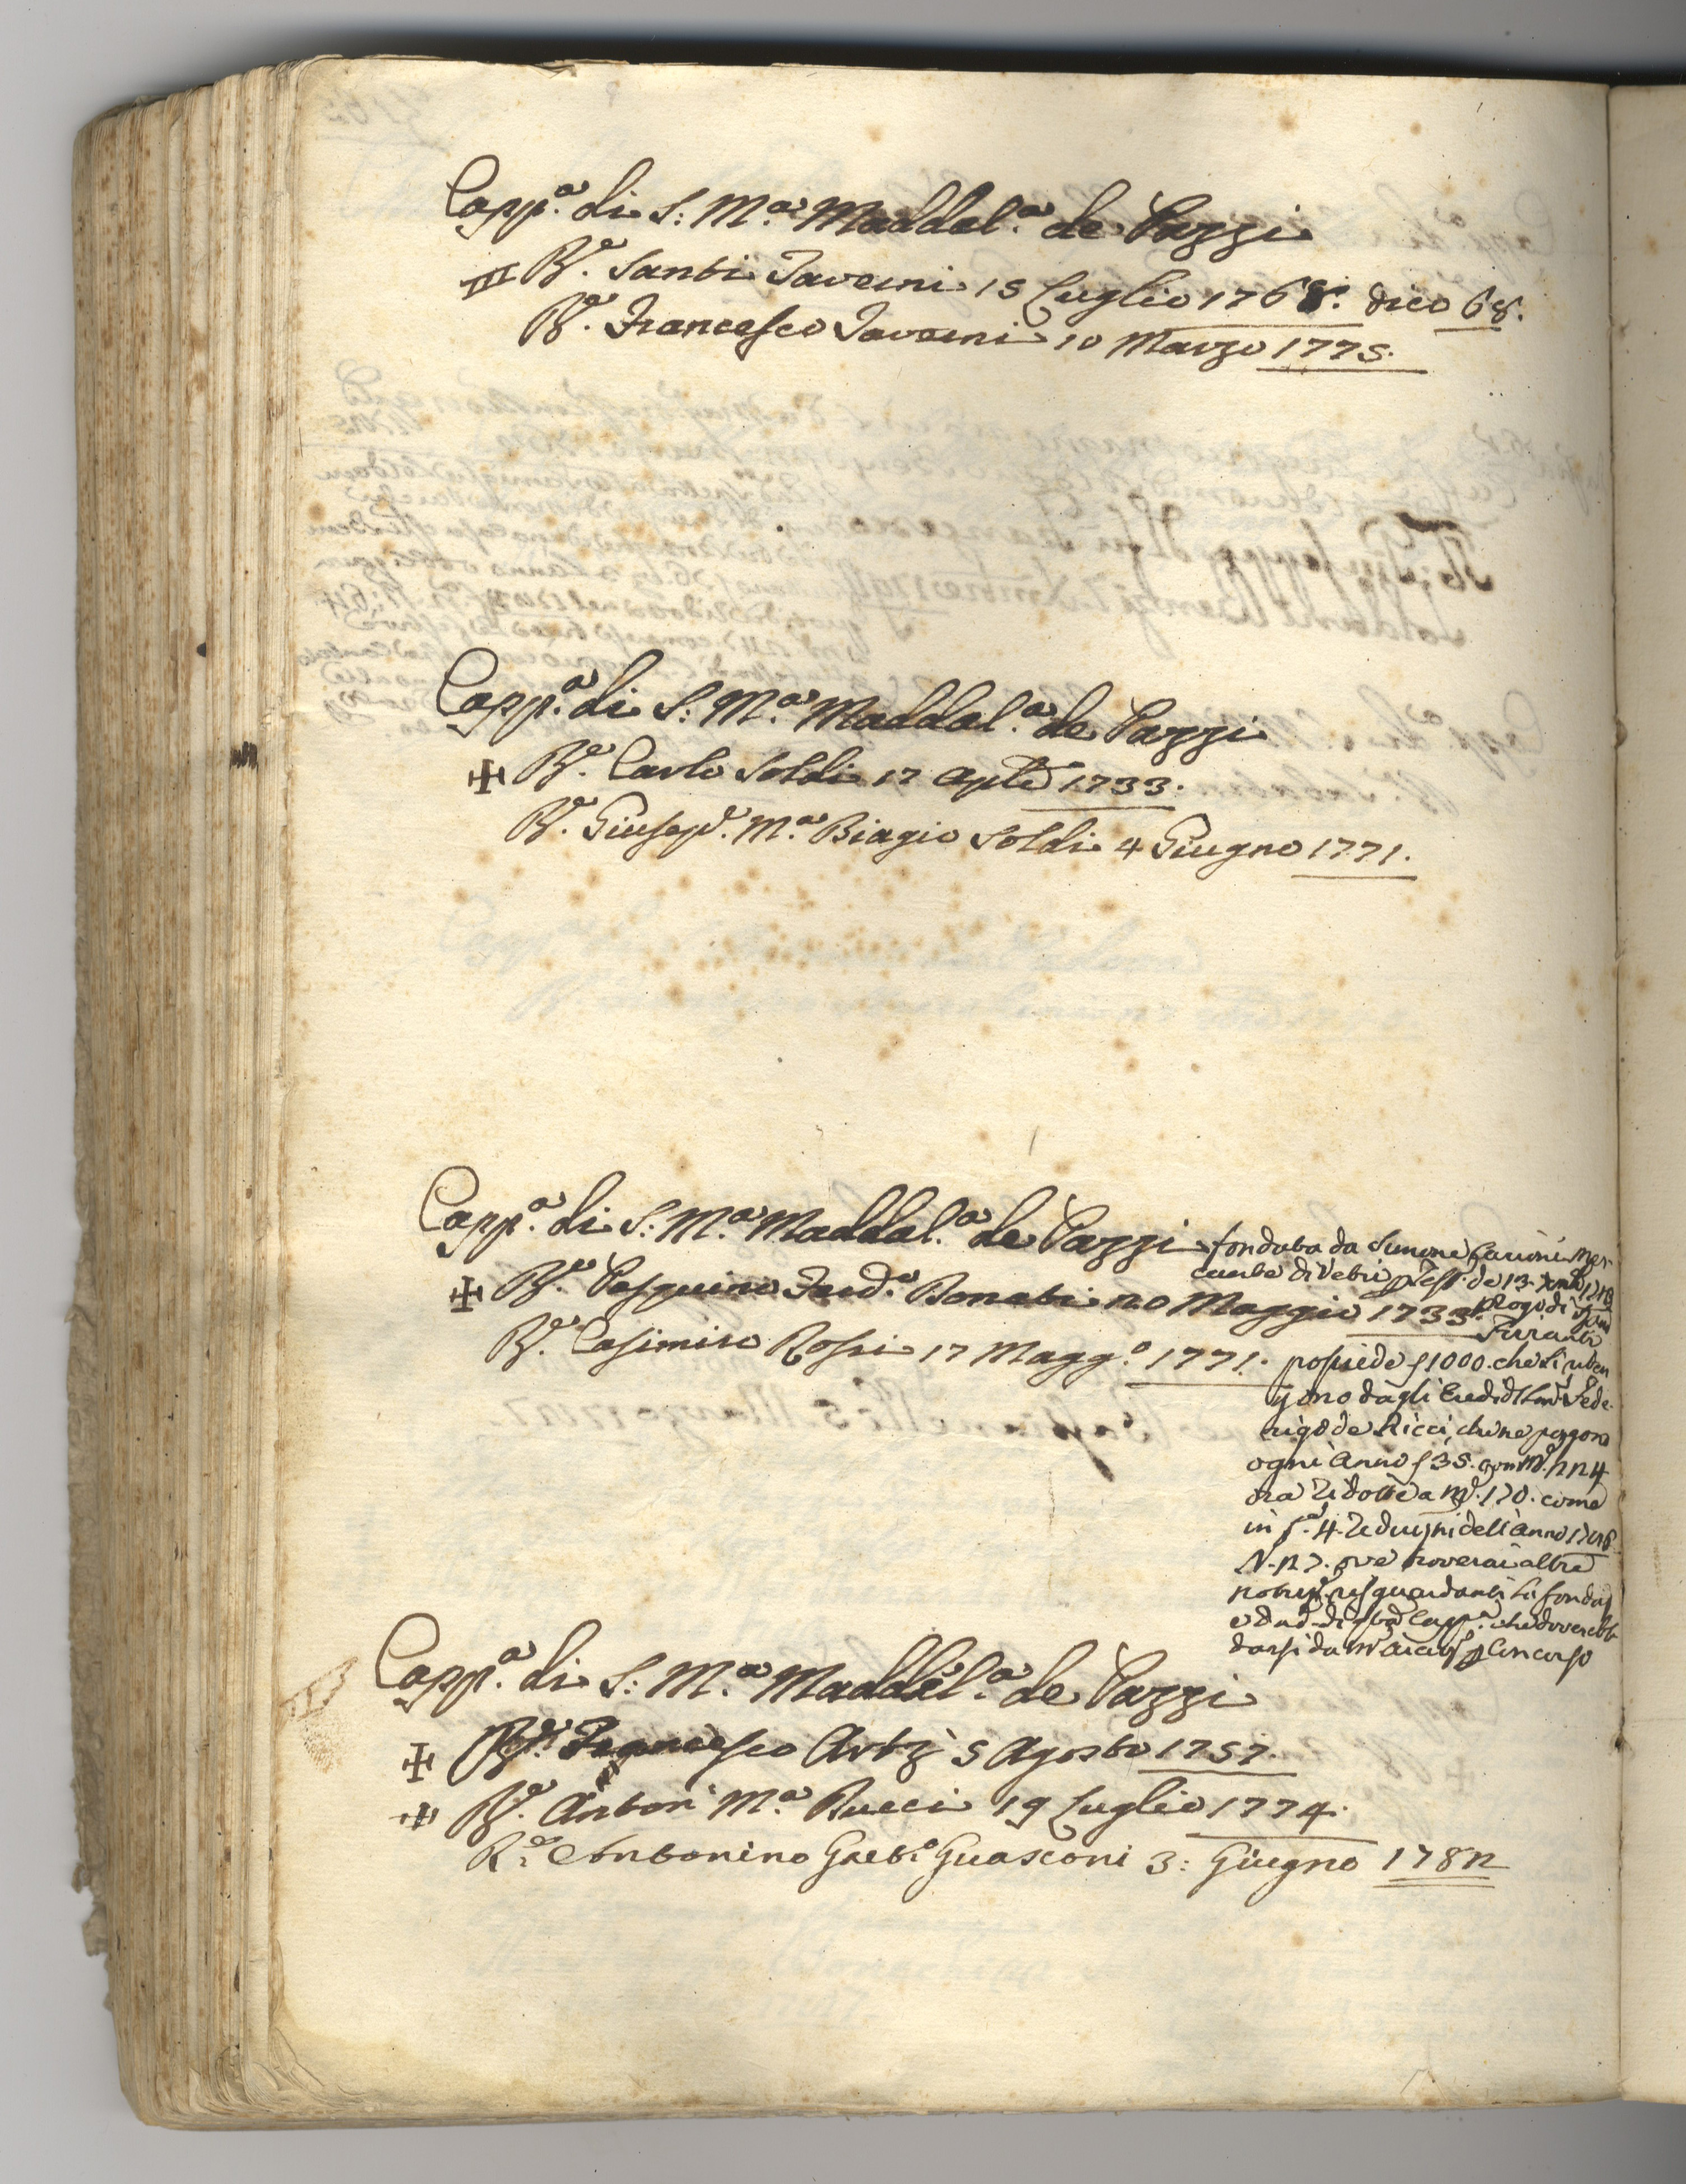 Capp.a di S: M.a Maddal.a de Pazzi
R.e Santi Taverni 15 Luglio 1768. dico 68.
R.e Francesco Taverni 10 Marzo 1775.
Capp.a di S: M.a Maddal.a de Pazzi
R.e Carlo Soldi 17 Aple 1733.
R.e Giusep.e M.a Biagio Soldi 4 Giugno 1771.
Capp.a di S: M.a Maddal.a de Pazzi fondata da Simone Mer-
cante di Vetri 13
R.e Pasquino Ferd.o Bonati 20 Maggio 1733. rogo di
R.e Casimiro Rossi 17 Magg.o 1771. possiede f 1000. che si riten
gono dagli Eredi di Fede-
rigo de Ricci, che ne pagono
ogni anno f 35. con 224
ora ridotte a 170. come
in 4. Reduzni dell'anno
N. 27. ove troverai altre
notizie risguardanti la fondaz
e di Capp.a che dovrebb
darsi da Concorso
Capp.a di S: M.a Maddal.a de Pazzi
R.e Francesco 5 Agosto 1757.
R.e Anton M.a Bucci 19 Luglio 1774.
R.e Antonino Gaet.o Guasconi 3: Giugno 1782